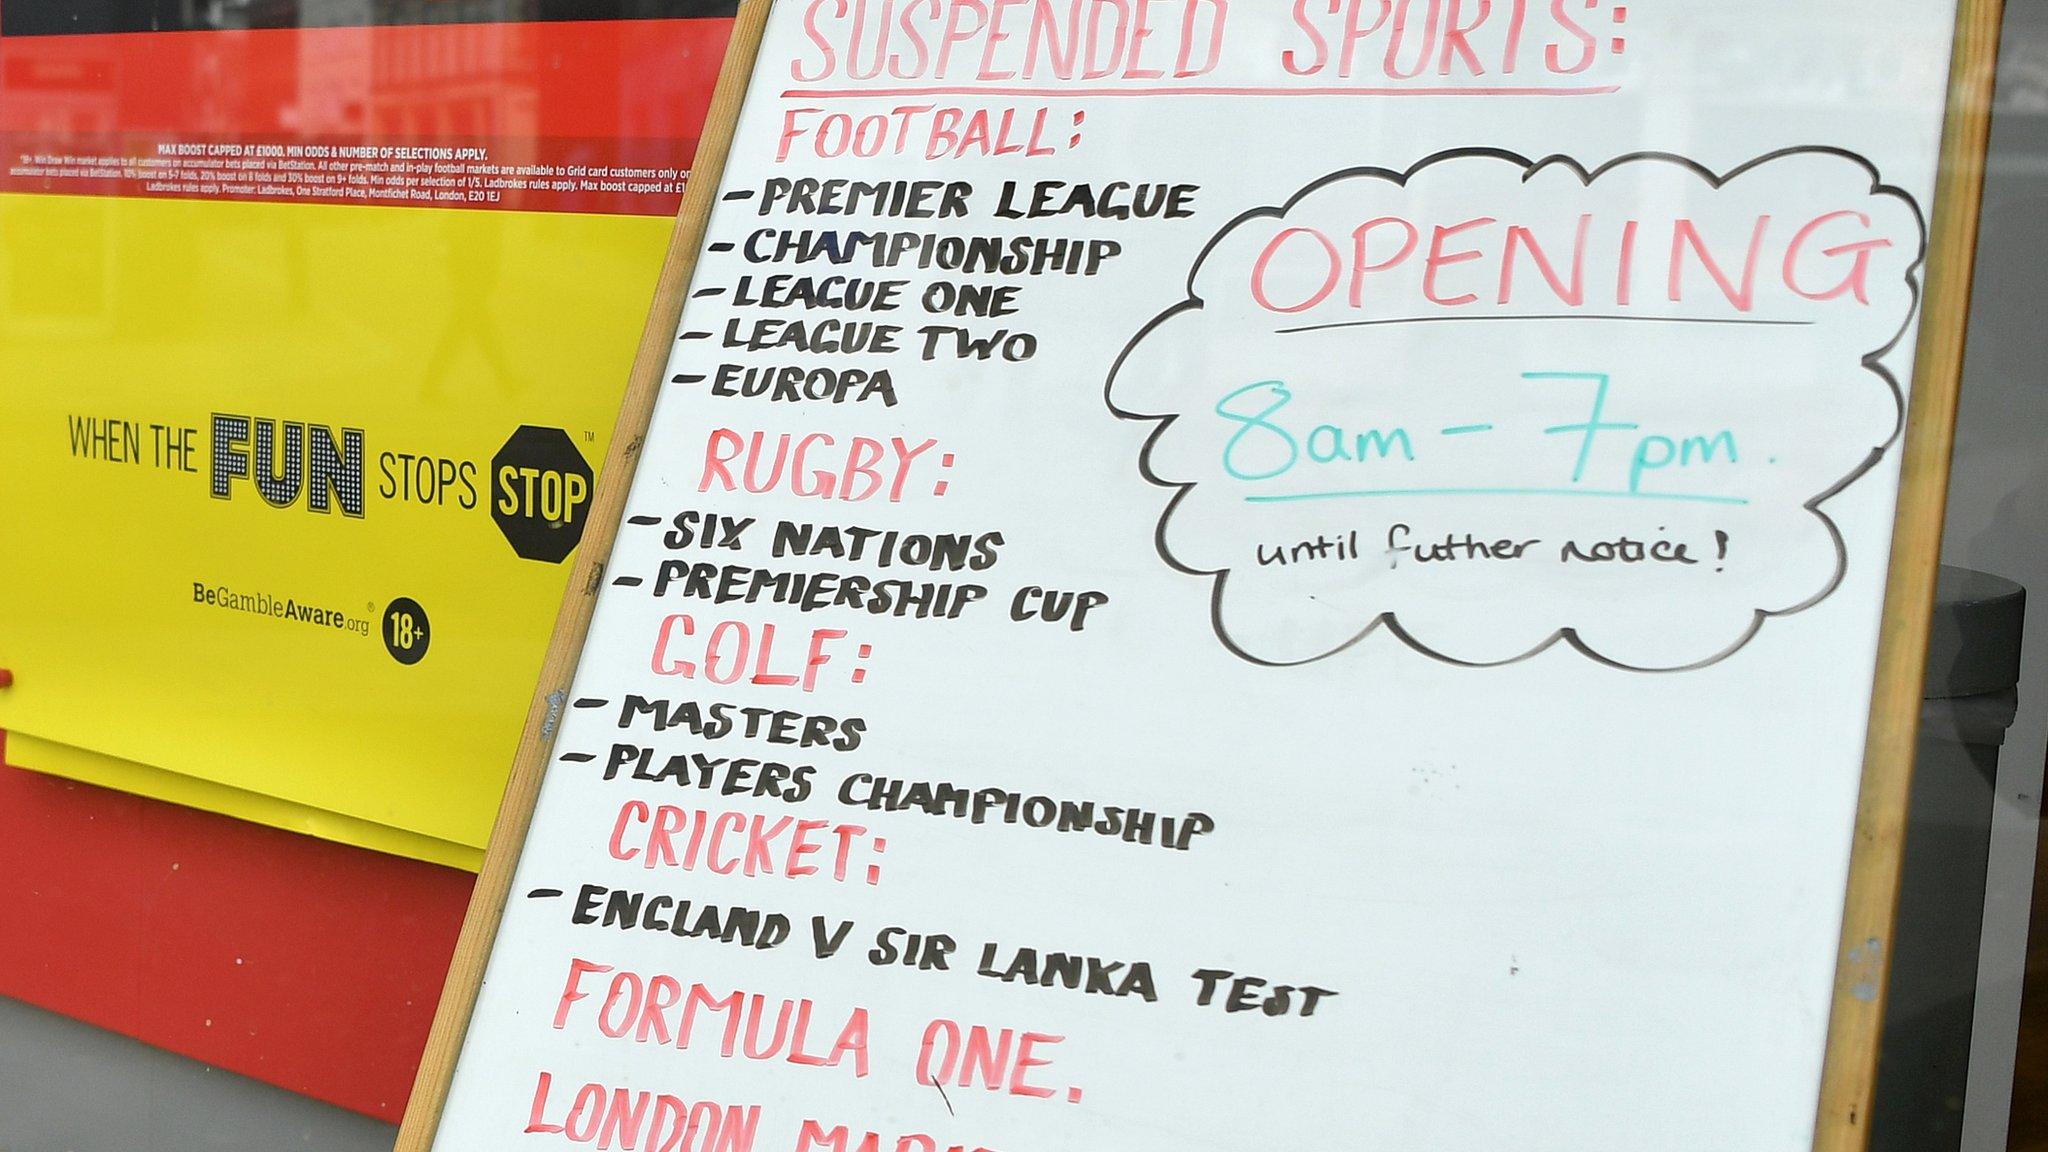 MAX BOOST CAPPED AT £1000. MIN ODDS & NUMBER OF SELECTIONS APPLY.
*18+. Win Draw Win market applies to all customers on accumulator bets placed via BetStation. All other pre-match and in-play football markets are available to Grid card customers only on
accumulator bets placed via BetStation. 10% boost on 5-7 folds, 20% boost on 8 folds and 30% boost on 9+ folds. Min odds per selection of 1/5. Ladbrokes rules apply. Max boost capped at £1
Ladbrokes rules apply. Promoter: Ladbrokes, One Stratford Place, Montfichet Road, London, E20 1EJ
WHEN THE FUN STOPS STOP™
BeGambleAware.org® 18+
SUSPENDED SPORTS:
FOOTBALL:
- PREMIER LEAGUE
- CHAMPIONSHIP
- LEAGUE ONE
- LEAGUE TWO
- EUROPA
RUGBY:
- SIX NATIONS
- PREMIERSHIP CUP
GOLF:
- MASTERS
- PLAYERS CHAMPIONSHIP
CRICKET:
- ENGLAND V SIR LANKA TEST
FORMULA ONE.
LONDON
OPENING
8am - 7pm.
until futher notice!